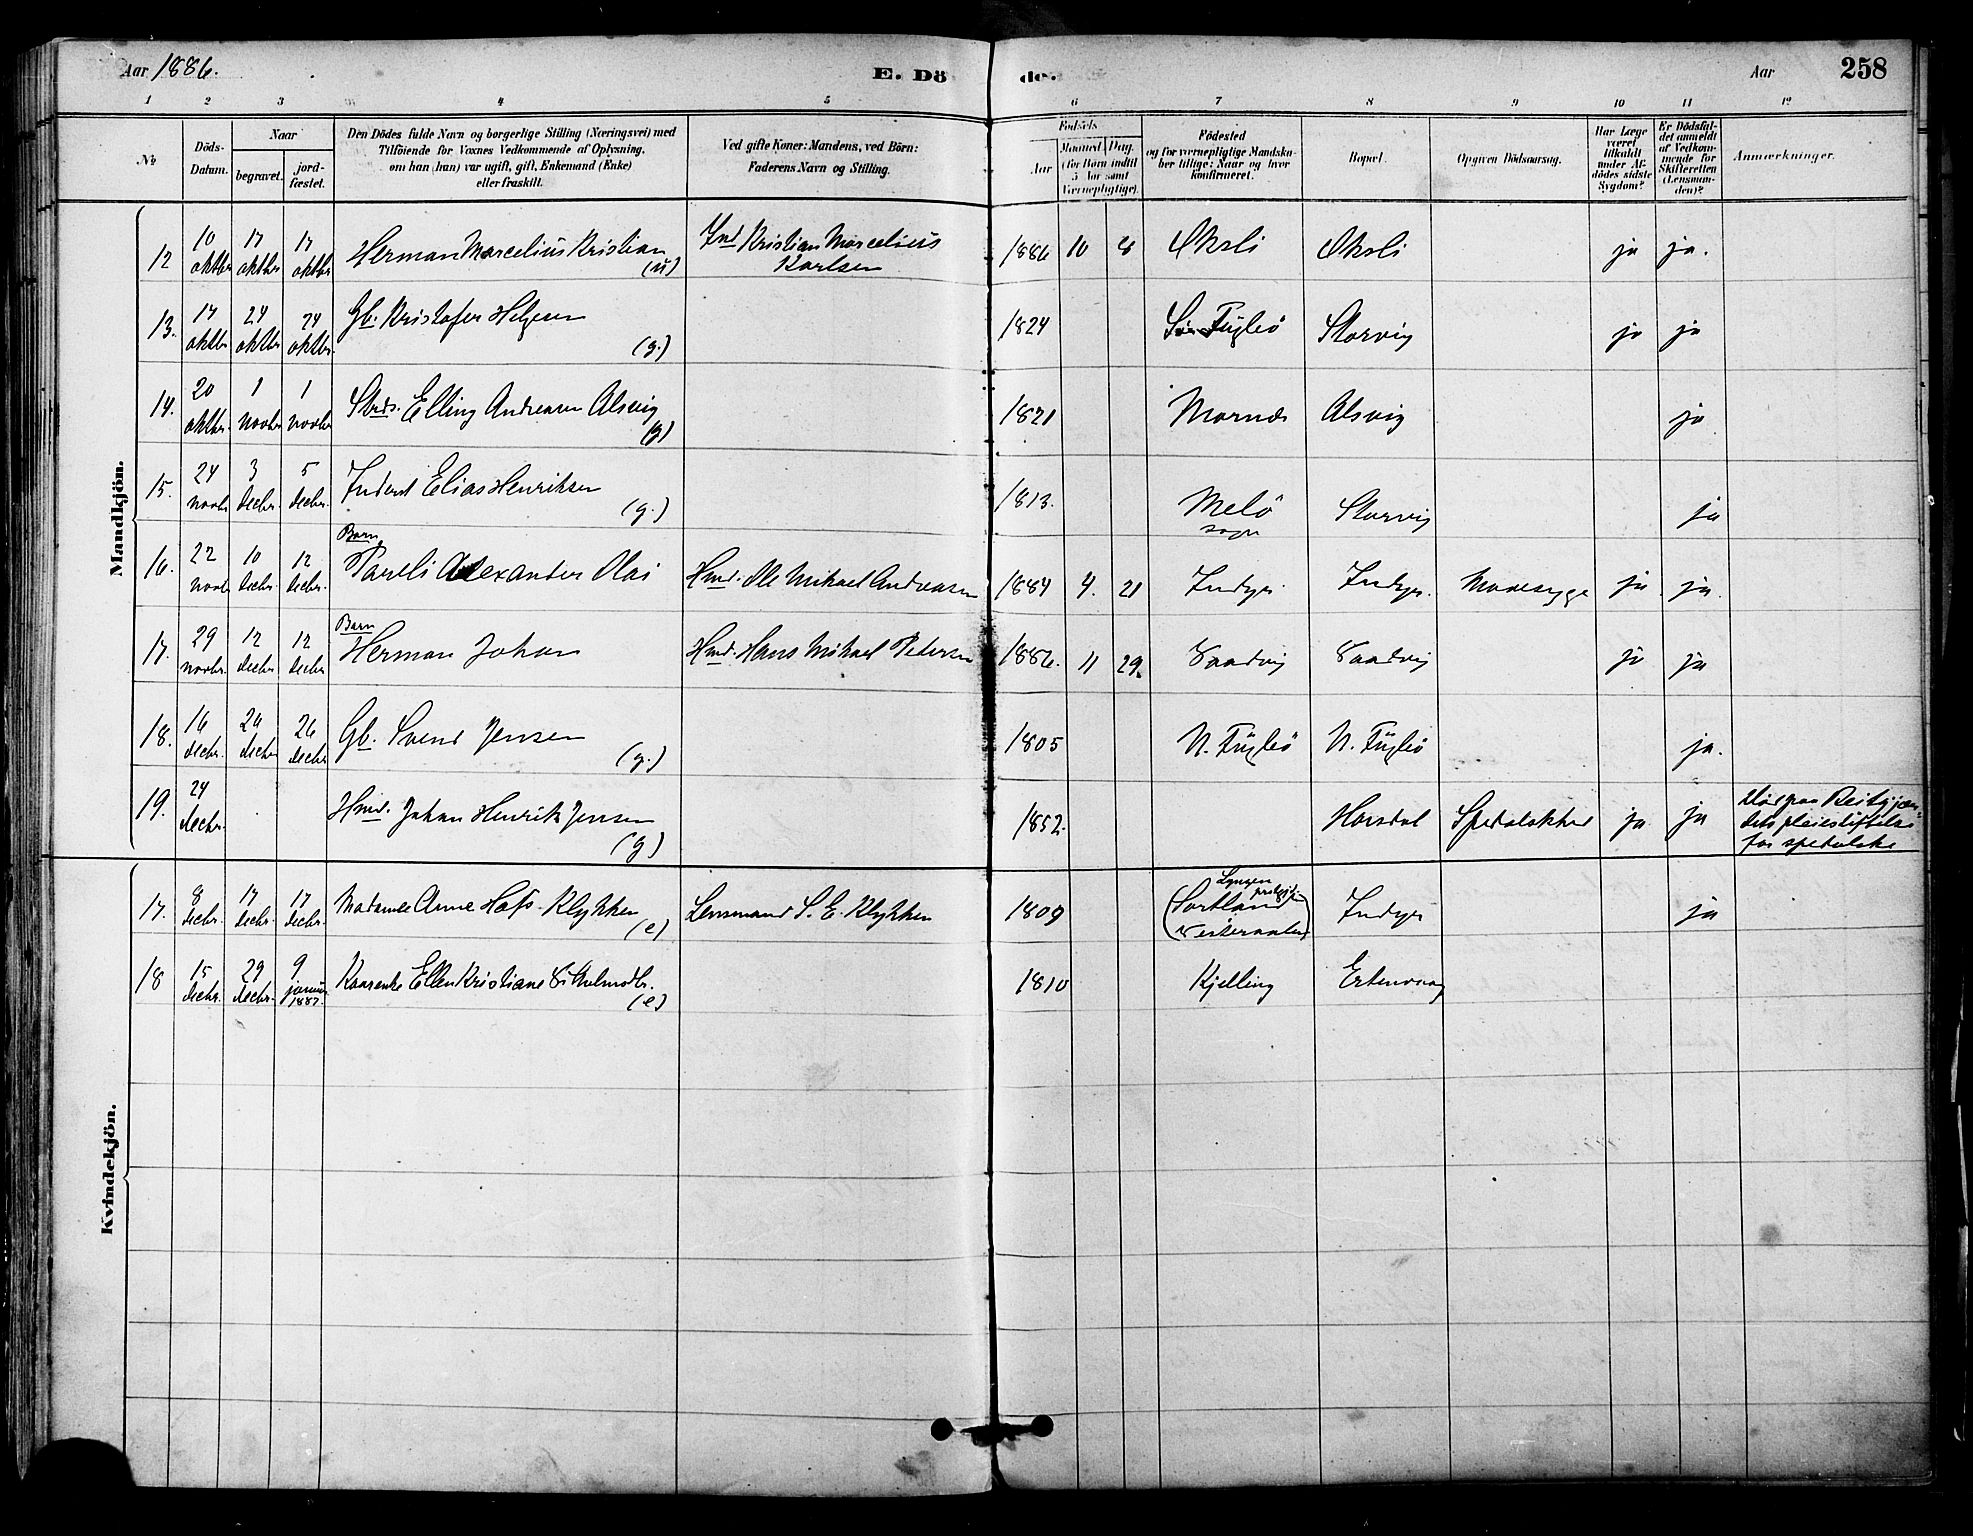 Aar 1886.
E. Döde.
Aar
258
1 2 3 4 5 6 7 8 9 10 11 12
No
Döds-Datum.
Naar
begravet.
jordfæstet.
Den Dödes fulde Navn og borgerlige Stilling (Næringsvei) med
Tilföiende for Voxnes Vedkommende af Oplysning,
om han (hun) var ugift, gift, Enkemand (Enke)
eller fraskilt.
Ved gifte Koner: Mandens, ved Börn:
Faderens Navn og Stilling.
Fødsels
Aar
Maaned. Dag.
(for Børn indtil
5 Aar samt
Værnepligtige).
Födested
og for værnepligtige Mandskaber tillige: Naar og hvor
konfirmeret.
Bopæl.
Opgiven Dödsaarsag.
Har Læge
været
tilkaldt
under Afdödes sidste
Sygdom?
Er Dödsfaldet anmeldt
af Vedkommende for
Skifteretten
(Lensmanden)?
Anmærkninger.
Mandkjön.
12 10 oktbr 17 oktbr 17 oktbr Herman Marcelius Kristian (u) Ind Kristian Marcelius Karlsen 1886 10 8 Oksli Oksli ja ja.
13. 17 oktbr 24 oktbr 24 oktbr. Gb. Kristofer Helgesen (g.) 1824 Fugleö Storvig ja ja
14. 20 oktbr. 1 novbr 1 novbr Elling Andreasen Alsvig (g) 1821 Mornæs Alsvig ja
15. 24 novbr 3 decbr. 5 decbr. Inderst Elias Henriksen (g.) 1813. Melö sogn Storvig ja
16. 22 novbr 10 decbr. 12 decbr. Barn Pareli Alexander Olai Hmd. Ole Mikael Andreasen 1884 4. 21 Indyr Indyr. Mavesyge ja ja.
17. 29 novbr. 12 decbr 12 decbr Barn Herman Johan Hmd. Hans Mikael Petersen 1886. 11 29. Saadvig Saadvig ja ja
18. 16 decbr. 24 decbr 26 decbr Gb. Svend Jensen (g.) 1805 N. Fugleö N. Fugleö ja.
19. 24 decbr. Hmd. Johan Henrik Jensen (g) 1852. Horsdal Spedalskhed ja ja Död paa Reitgjærdets pleiestiftelse for spedalske
Kvindekjön.
17. 8 decbr. 17 decbr. 17 decbr. Madame Anne Klykken (e) Lensmand S. E. Klykken 1809 Lyngen prstgjld. (Sortland Vesteraalen) Indyr ja
18 15 decbr. 29 decbr. 9 januar 1887. Ellen Kristiane (e) 1810 Kjelling Ertenvaag